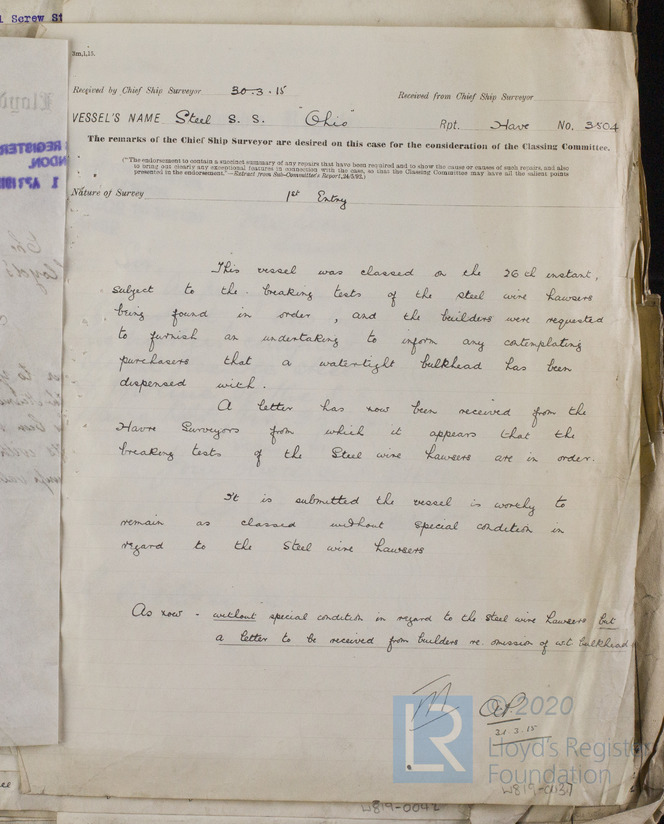 l Screw St
3m,1,15.
Received by Chief Ship Surveyor 30.3.15
Received from Chief Ship Surveyor
VESSEL'S NAME Steel S. S. "Ohio" Rpt. Havre No. 3504
The remarks of the Chief Ship Surveyor are desired on this case for the consideration of the Classing Committee.
("The endorsement to contain a succinct summary of any repairs that have been required and to show the cause or causes of such repairs, and also
to bring out clearly any exceptional features in connection with the case, so that the Classing Committee may have all the salient points
presented in the endorsement."—Extract from Sub-Committee's Report, 24/5/92.)
Nature of Survey 1st Entry
This vessel was classed on the 26th instant,
subject to the breaking tests of the steel wire hawsers
being found in order, and the builders were requested
to furnish an undertaking to inform any contemplating
purchasers that a watertight bulkhead has been
dispensed with.
A letter has now been received from the
Havre Surveyors from which it appears that the
breaking tests of the Steel wire hawsers are in order.
It is submitted the vessel is worthy to
remain as classed without special condition in
regard to the Steel wire hawsers
As now - without special condition in regard to the steel wire hawsers but
a letter to be received from builders re. omission of w.t. bulkhead
31.3.15
© 2020
LR
Lloyd's Register
Foundation
W819-0037
W819-0042